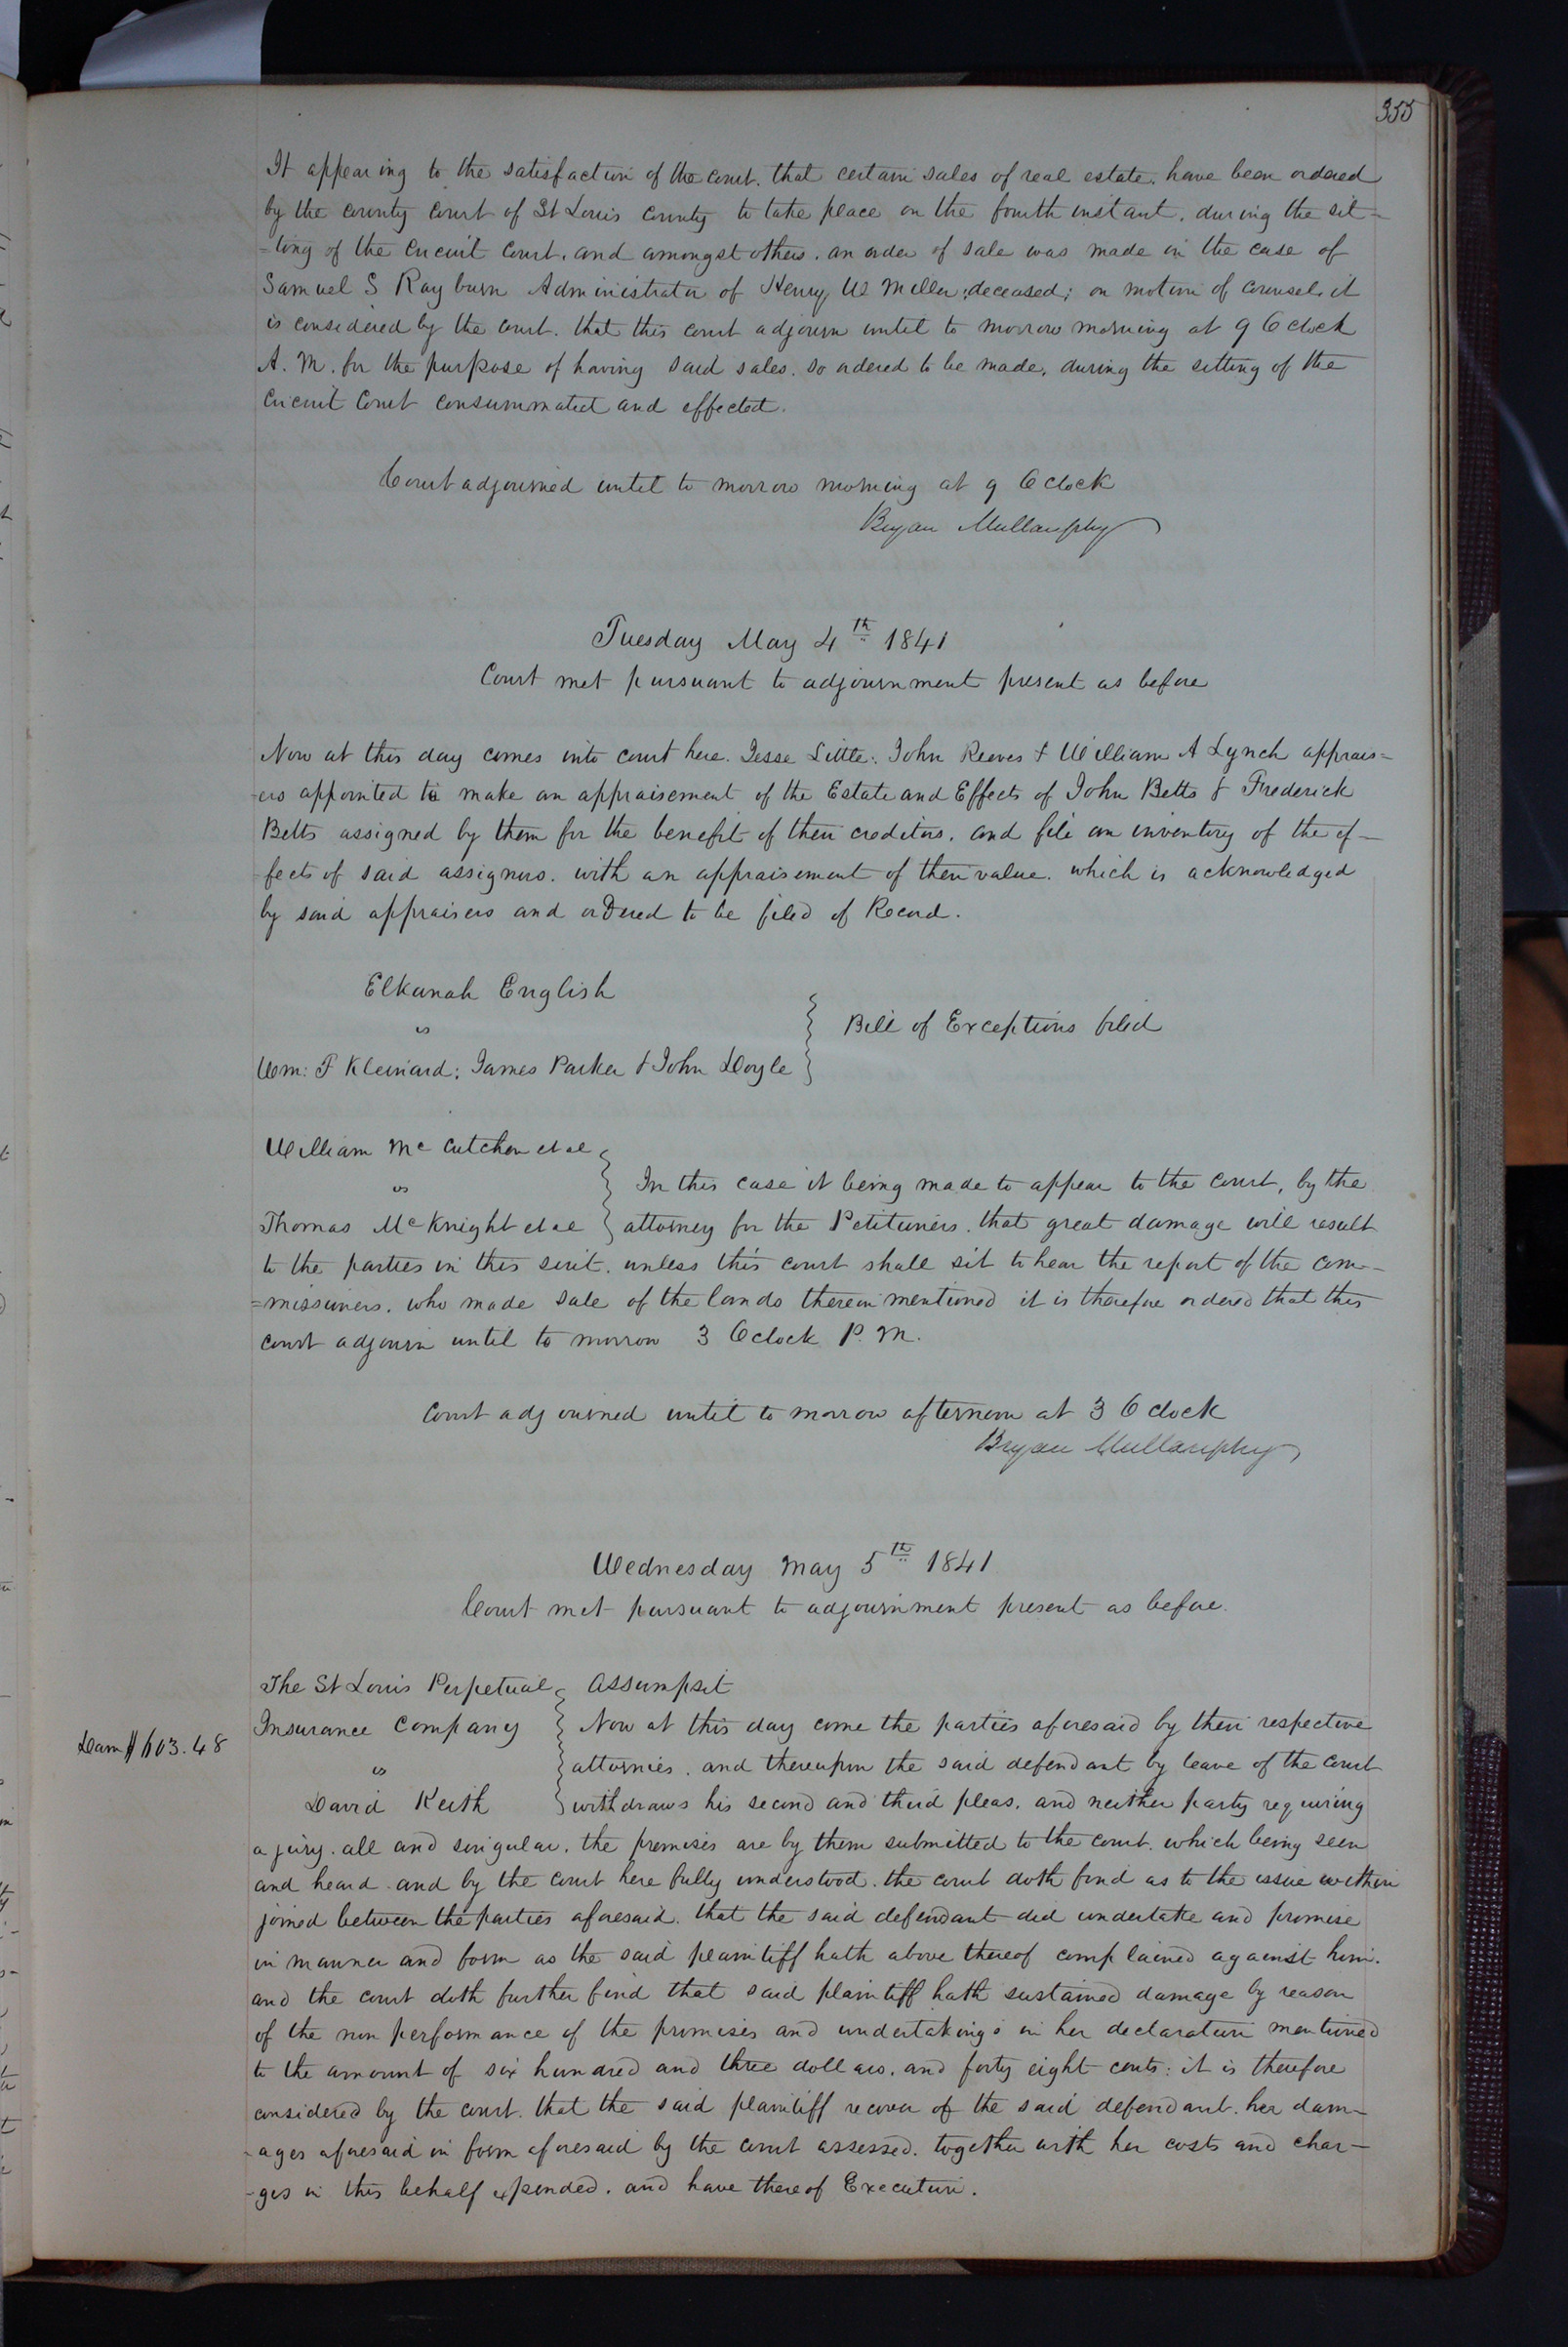 355
It appearing to the satisfaction of the court. that certain sales of real estate. have been ordered
by the county court of St Louis county to take place on the fourth instant. during the sit=
=ting of the circuit court. and amongst others. an order of sale was made in the case of
Samuel S Rayburn Administrator of Henry W Miller; deceased; on motion of counsel. it
is considered by the court. that this court adjourn until to morrow morning at 9 Oclock
A. M. for the purpose of having said sales. so ordered to be made, during the sitting of the
circuit Court consummated and effected.
Court adjourned until to morrow morning at 9 Oclock
Bryan Mullanphy
Tuesday May 4th 1841
Court met pursuant to adjournment present as before
Now at this day comes into court here. Jesse Little: John Reeves & William A Lynch apprais=
-ers appointed to make an appraisement of the Estate and Effects of John Betts & Frederick
Betts assigned by them for the benefit of their creditors. and file an inventory of the ef-
-fects of said assignors. with an appraisement of their value. which is acknowledged
by said appraisers and ordered to be filed of Record.
Elkanah English
vs
Bill of Exceptions filed
Wm: F Kleiniard: James Parker & John Doyle
William Mc Cutchen et al
vs
In this case it being made to appear to the court, by the
Thomas McKnight et al attorney for the Petitioners. that great damage will result
to the parties in this suit. unless this court shall sit to hear the report of the com-
=missioners. who made sale of the lands therein mentioned it is therefore ordered that this
court adjourn until to morrow 3 Oclock P. M.
Court adjourned until to morrow afternoon at 3 Oclock
Bryan Mullanphy
Wednesday May 5th 1841
Court met pursuant to adjournment present as before.
The St Louis Perpetual Assumpsit
Insurance Company Now at this day come the parties aforesaid by their respective
Dam $603.48
vs attornies. and thereupon the said defendant by leave of the court
David Keith withdraws his second and third pleas. and neither party requiring
a jury. all and singular. the premises are by them submitted to the court. which being seen
and heard. and by the court here fully understood. the court doth find as to the issue within
joined between the parties aforesaid. that the said defendant did undertake and promise
in manner and form as the said plaintiff hath above thereof complained against him.
and the court doth further find that said plaintiff hath sustained damage by reason
of the non performance of the promises and undertakings in her declaration mentioned
to the amount of six hundred and three dollars. and forty eight cents: it is therefore
considered by the court. that the said plaintiff recover of the said defendant. her dam-
-ages aforesaid in form aforesaid by the court assessed. together with her costs and char-
-ges in this behalf expended. and have thereof Execution.